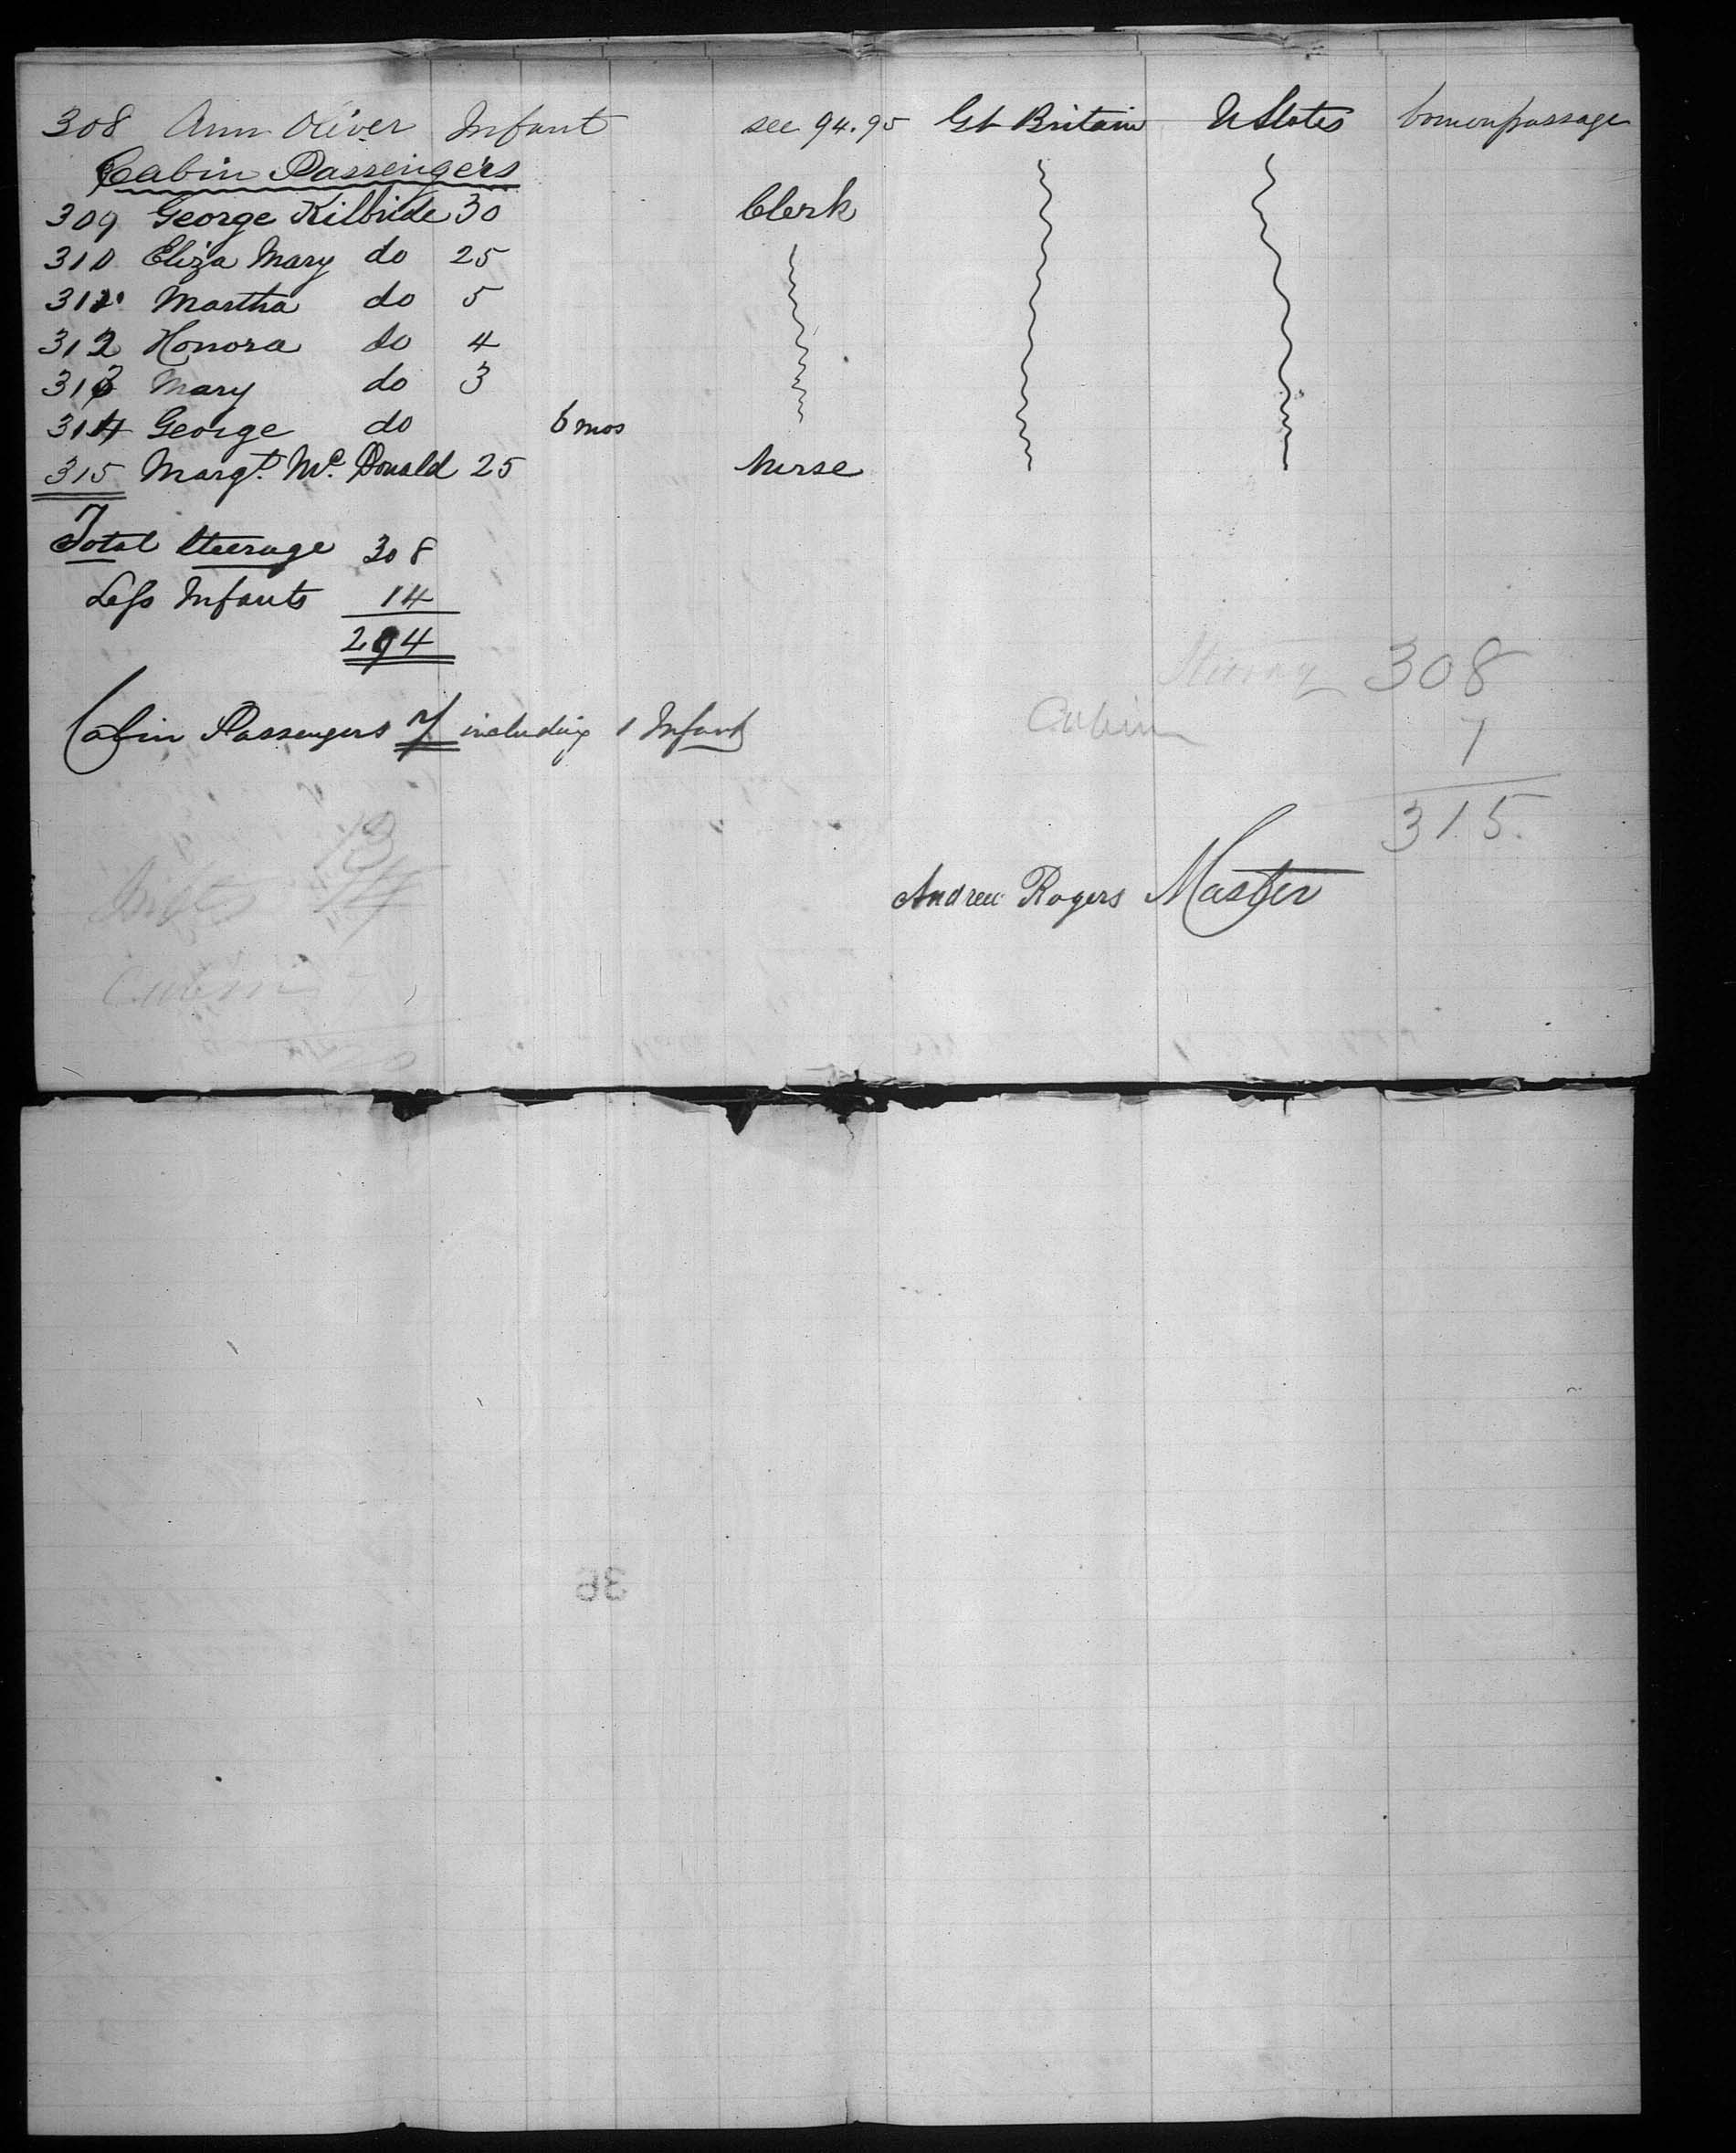 308 Ann Oliver Infant see 94.95 Gt Britain U States born on passage
Cabin Passengers
309 George Kilbride 30 Clerk
310 Eliza Mary do 25
311 Martha do 5
312 Honora do 4
313 Mary do 3
314 George do 6 mos
315 Margt. Mc. Donald 25 Nurse
Total Steerage 308
Less Infants 14
294
Cabin Passengers 7 including 1 Infant
Steerage 308
Cabin 7
315.
13
14
Andrew Rogers Master
Cabin
36